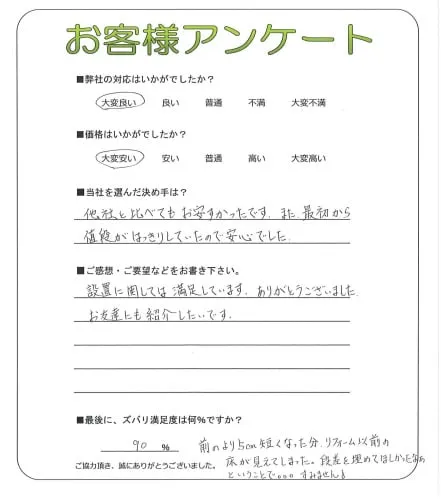 お客様アンケート
■弊社の対応はいかがでしたか？
大変良い 良い 普通 不満 大変不満
■価格はいかがでしたか？
大変安い 安い 普通 高い 大変高い
■当社を選んだ決め手は？
他社と比べてもお安すかったです。また、最初から
値段がはっきりしていたので安心でした。
■ご感想・ご要望などをお書き下さい。
設置に関しては満足しています。ありがとうございました。
お友達にも紹介したいです。
■最後に、ズバリ満足度は何%ですか？
90 %
前のより5cm短くなった分、リフォーム以前の
床が見えてしまった。段差を埋めてほしかったなぁ
ということで。。。すみません！
ご協力頂き、誠にありがとうございました。